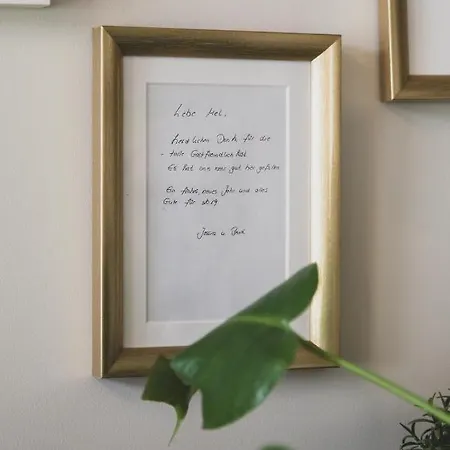 Liebe Meli,
herzlichen Dank für die
tolle Gastfreundlichkeit
Es hat uns sehr gut hier gefallen
Ein frohes, neues Jahr und alles
Gute für 2019
u.